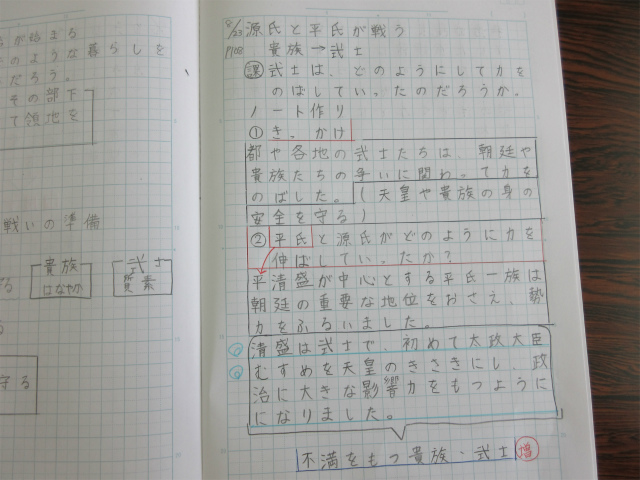 が始まる
のような暮らしを
だろう。
その部下
て領地を
戦いの準備
貴族
はなやか
武士
質素
守る
8/23
P108
源氏と平氏が戦う
貴族→武士
課 武士は、どのようにして力を
のばしていったのだろうか。
ノート作り
①きっかけ
都や各地の武士たちは、朝廷や
貴族たちの争いに関わって力を
のばした。(天皇や貴族の身の
安全を守る)
②平氏と源氏がどのように力を
伸ばしていったか?
平清盛が中心とする平氏一族は
朝廷の重要な地位をおさえ、勢
力をふるいました。
清盛は武士で、初めて太政大臣
むすめを天皇のきさきにし、政
治に大きな影響力をもつように
になりました。
不満をもつ貴族・武士 増